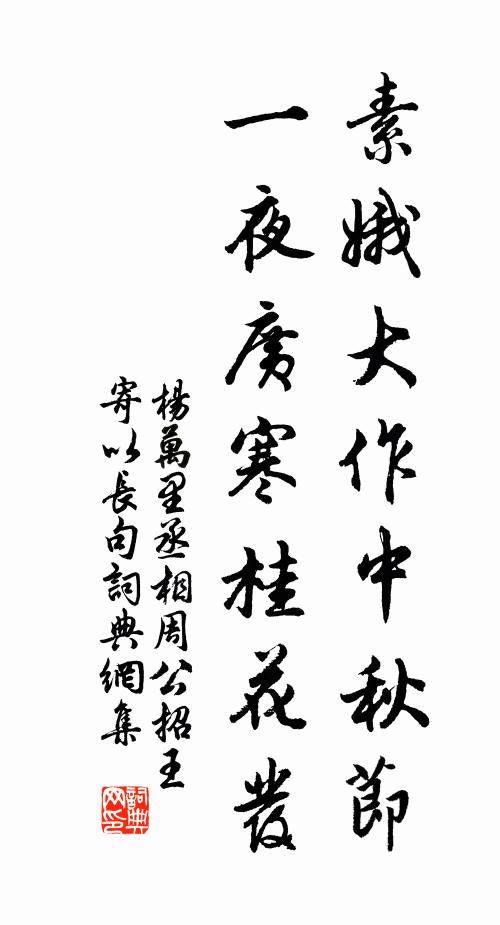 素娥大作中秋節
一夜廣寒桂花發
楊萬里丞相周公招王
寄以長句詞典網集
詞典
网印